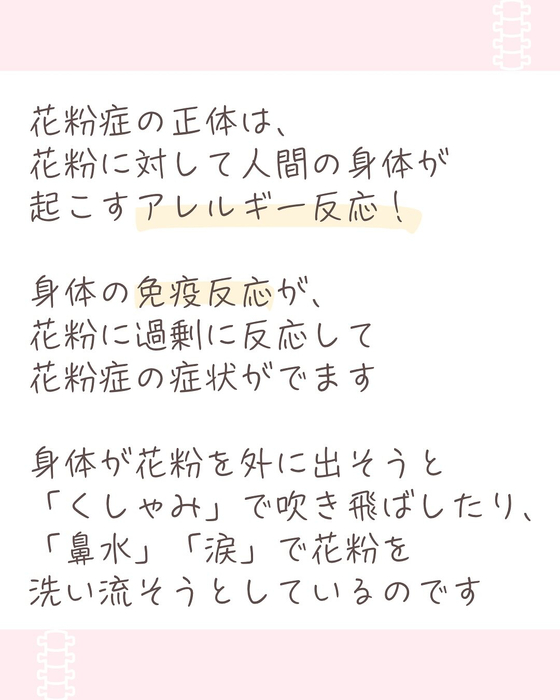 花粉症の正体は、
花粉に対して人間の身体が
起こすアレルギー反応！
身体の免疫反応が、
花粉に過剰に反応して
花粉症の症状がでます
身体が花粉を外に出そうと
「くしゃみ」で吹き飛ばしたり、
「鼻水」「涙」で花粉を
洗い流そうとしているのです